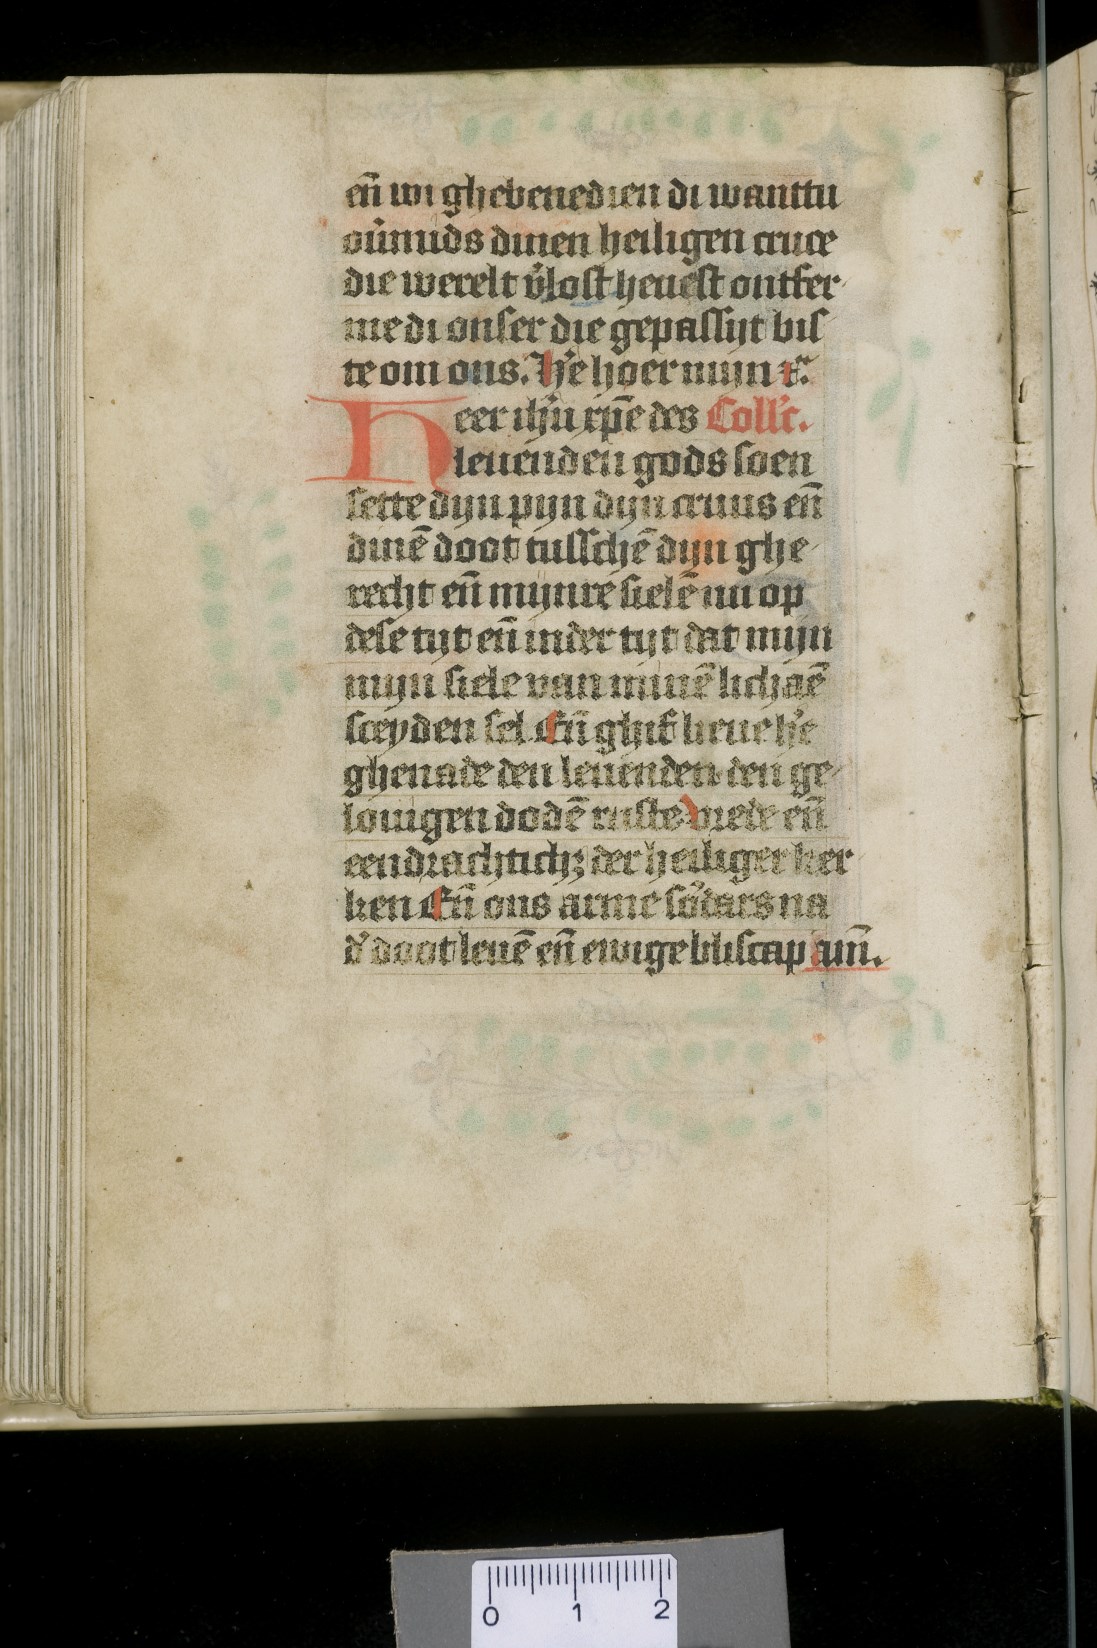 en̄ wi ghebenedien di wanttu
ou̾mids dinen heiligen cruce
die werelt v̾lost heuest ontfer
me di onser die gepassijt bis
te om ons. H̾e hoer mijn ⁊c̃.
Heer ih̾u xp̄e des Coll'c.
leuenden gods soen
sette dijn pijn dijn cruus en̄
dinē doot tusschē dijn ghe
recht en̄ mijnre sielē nu op
dese tijt en̄ in der tijt dat mijn
mijn siele van minē lichaē
sceyden sel En̄ ghif lieue h̾e
ghenade den leuenden den ge
louigen dodē ruste vrede en̄
eendrachtich₃ der heiliger ker
ken En̄ ons arme sōdars na
d̾ doot leuē en̄ ewige bliscap am̄.
0 1 2